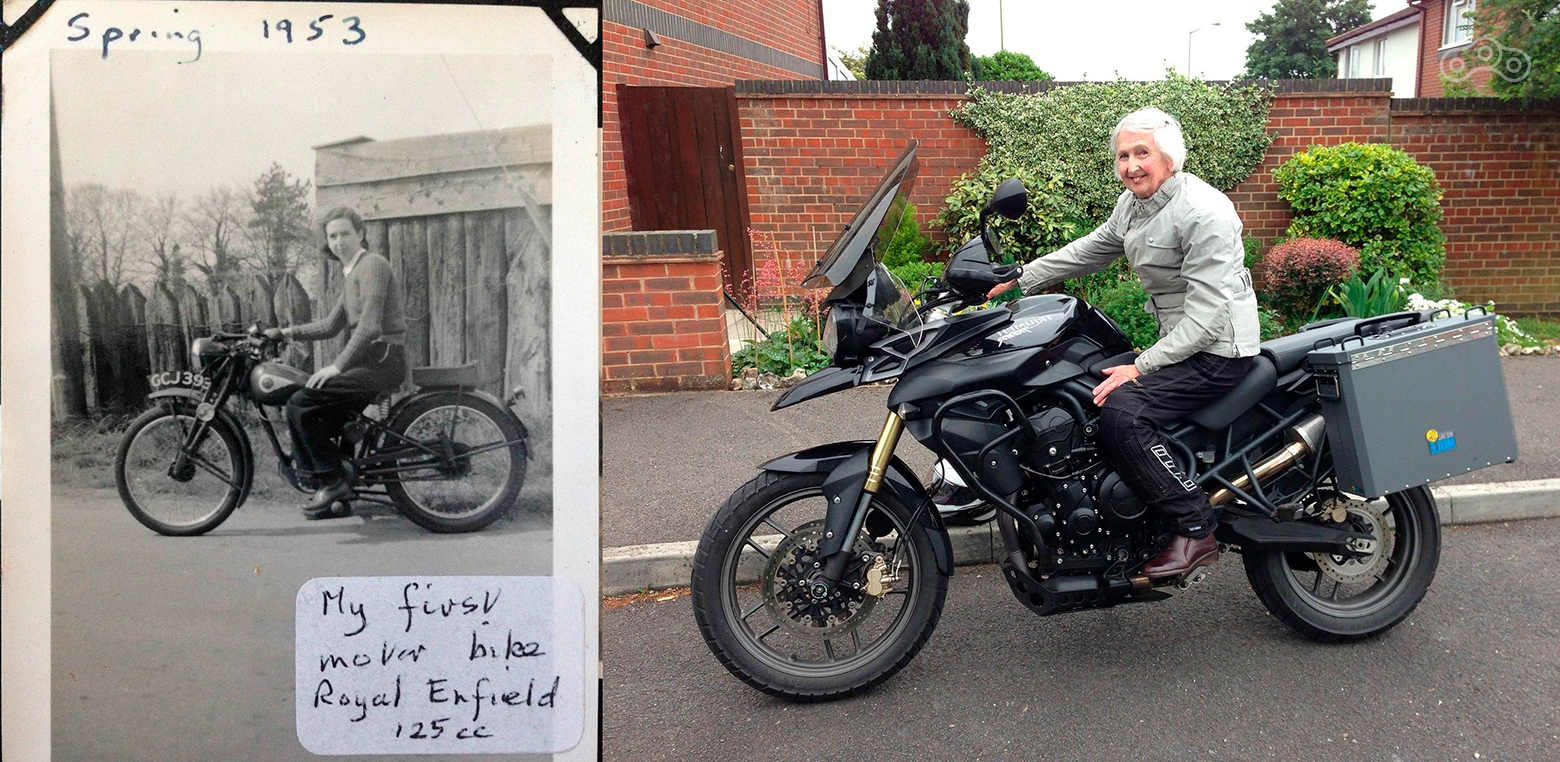 Spring 1953
GCJ 393
My first
motor bike
Royal Enfield
125 cc
TRIUMPH